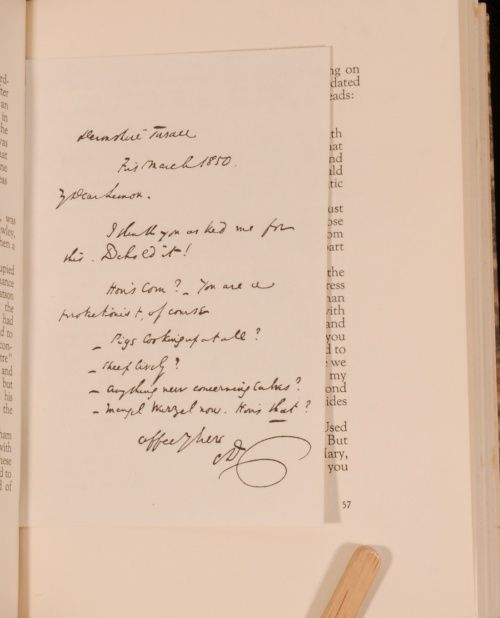 rd-
ter
an
in
he
was
ast
ne
ess
was
wley,
hen a
upied
nance
atson
the
had
d to
con-
tre"
and
but
his
the
ham
with
hese
d to
d of
Devonshire Terrace
March 1850.
My Dear Lemon.
I think you asked me for
this. Behold it!
How's Corn? – You are a
protectionist, of course
– Pigs looking up at all?
– Sheep lively?
– anything new concerning Calves?
– Mangel Wurzel now. How's that?
CD
ng on
dated
eads:
th
hat
nd
uld
tic
ust
ose
om
part
the
ress
han
with
and
you
d to
we
my
ond
ides
Used
But
lary,
you
57